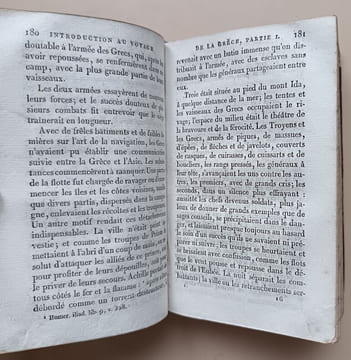 180 INTRODUCTION AU VOYAGE
doutable à l'armée des Grecs, qui, après
avoir repoussés, se renfermèrent dans
camp, avec la plus grande partie de leurs
vaisseaux.
Les deux armées essayèrent de
leurs forces; et le succès douteux de
sieurs combats fit entrevoir que le
traîneroit en longueur.
Avec de frêles bâtiments et de foibles
mières sur l'art de la navigation, les Grecs
n'avaient pu établir une communication
suivie entre la Grèce et l'Asie. Les
tances commencèrent à manquer. Une partie
de la flotte fut chargée de ravager ou
mencer les îles et les côtes voisines, tandis
que divers partis, dispersés dans la
gne, enlevoient les récoltes et les troupeaux.
Un autre motif rendoit ces
indispensables. La ville n'étoit
vestie; et comme les troupes de Priam
mettoient à l'abri d'un coup de main, on
solut d'attaquer les alliés de ce prince,
pour profiter de leurs dépouilles,
le priver de leurs secours. Achille portoit
tous côtés le fer et la flamme:
débordé comme un torrent
Homer. iliad. lib. 9, v. 328.
DE LA GRÈCE, PARTIE I. 181
revenoit avec un butin immense qu'on dis-
tribuoit à l'armée, avec des esclaves sans
nombre que les généraux partageoient entre
eux.
Troie étoit située au pied du mont Ida,
à quelque distance de la mer; les tentes et
les vaisseaux des Grecs occupoient le ri-
vage; l'espace du milieu étoit le théâtre de
la bravoure et de la férocité. Les Troyens et
les Grecs, armés de piques, de massues,
d'épées, de flèches et de javelots, couverts
de casques, de cuirasses, de cuissarts et de
boucliers, les rangs pressés, les généraux à
leur tête, s'avançoient les uns contre les au-
tres; les premiers, avec de grands cris; les
seconds, dans un silence plus effrayant:
aussitôt les chefs devenus soldats, plus ja-
loux de donner de grands exemples que de
sages conseils, se précipitoient dans le dan-
ger, et laissoient presque toujours au hasard
le soin d'un succès qu'ils ne savoient ni pré-
parer ni suivre; les troupes se heurtoient et
se brisoient avec confusion, comme les flots
que le vent pousse et repousse dans le dé-
troit de l'Eubée. La nuit séparoit les com-
battants; la ville ou les retranchements